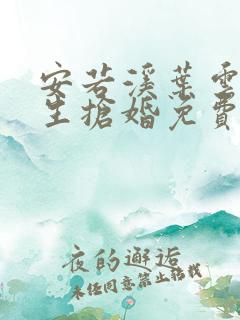 安若溪葉雲
生搶婚免費
夜的邂逅
未经同意禁止转载